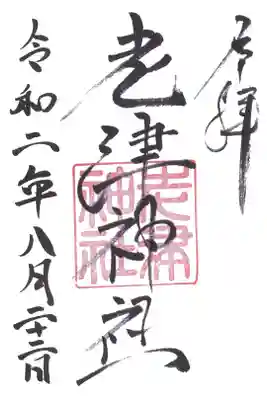 奉拝
老津神社
老津
神社
令和二年八月二十三日